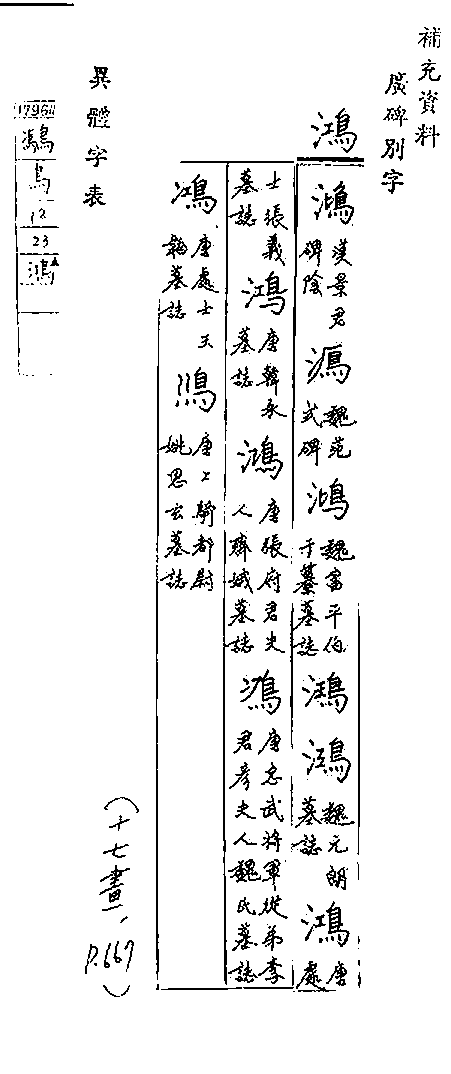 補充資料
廣碑別字
鴻
鴻 漢景君碑陰 鴻 魏范式碑 鴻 魏富平伯于纂墓誌 鴻 鴻 魏元朗墓誌 鴻 唐處
士張義墓誌 鴻 唐韓永墓誌 鴻 唐張府君夫人 墓誌 鴻 唐忠武將軍從弟李君彥夫人魏氏墓誌
鴻 唐處士王 墓誌 鴻 唐上騎都尉姚思玄墓誌
異體字表
鳥
12
23
鴻
(十七畫、P.667)